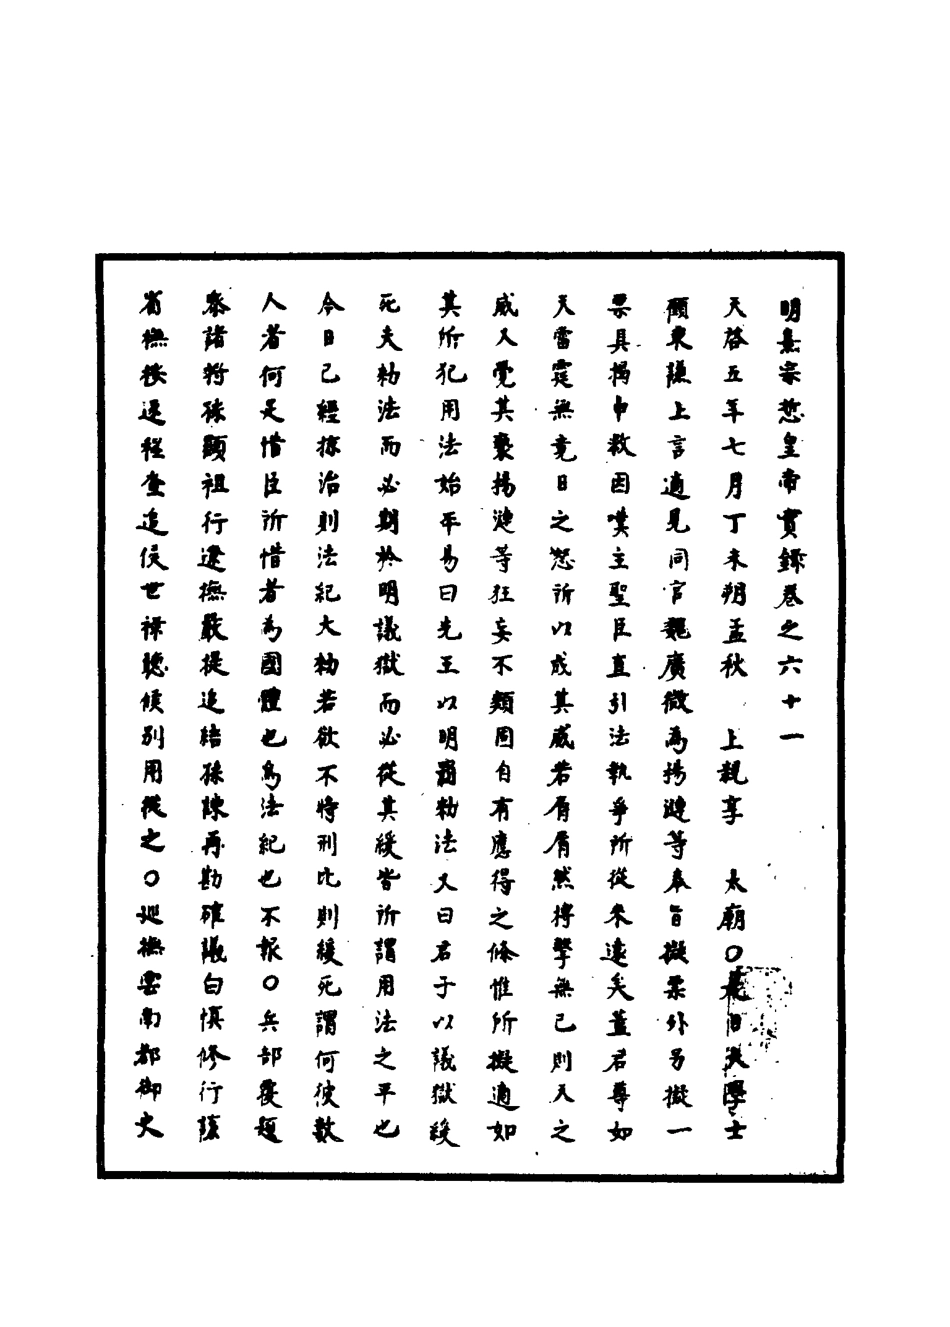 明熹宗悊皇帝實錄卷之六十一
天啓五年七月丁未朔孟秋　上親享　太廟〇是日大學士
顧秉謙上言適見同官魏廣微為揚漣等奉旨擬票外另擬一
票具揭申救因嘆主聖臣直引法執爭所從來遠矣蓋君尊如
天雷霆無竟日之怒所以成其威若屑屑然搏擊無已則天之
威又覺其褻揚漣等狂妄不類固自有應得之條惟所擬適如
其所犯用法始平易曰先王以明罰勑法又曰君子以議獄緩
死夫勑法而必期於明議獄而必從其緩皆所謂用法之平也
今日已經掠治則法紀大勑若欲不特刑比則緩死謂何彼數
人者何足惜臣所惜者為國體也為法紀也不報〇兵部覆題
泰諸將孫顯祖行遼撫嚴提追結孫諫再勘確議白慎修行該
省撫按逐程查追侯世祿聽候別用從之〇廵撫雲南都御史